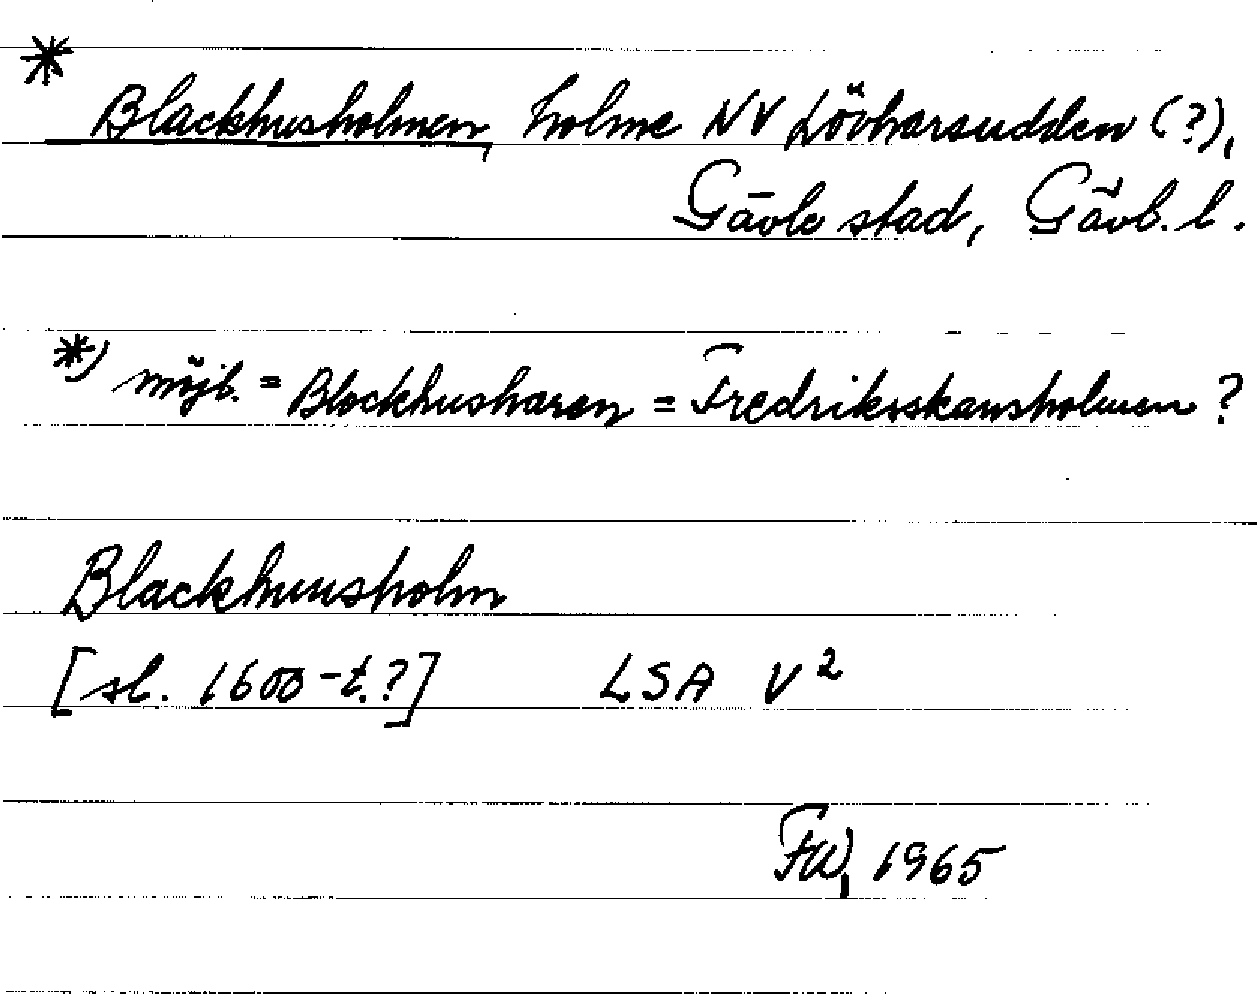 *
Blackhusholmen, holme NV Lövharsudden (?),
Gävle stad, Gävl. l.
*) möjl. = Blockhusharen = Fredriksskansholmen ?
Blackhuusholm
[sl. 1600-t.?] LSA V²
FW, 1965